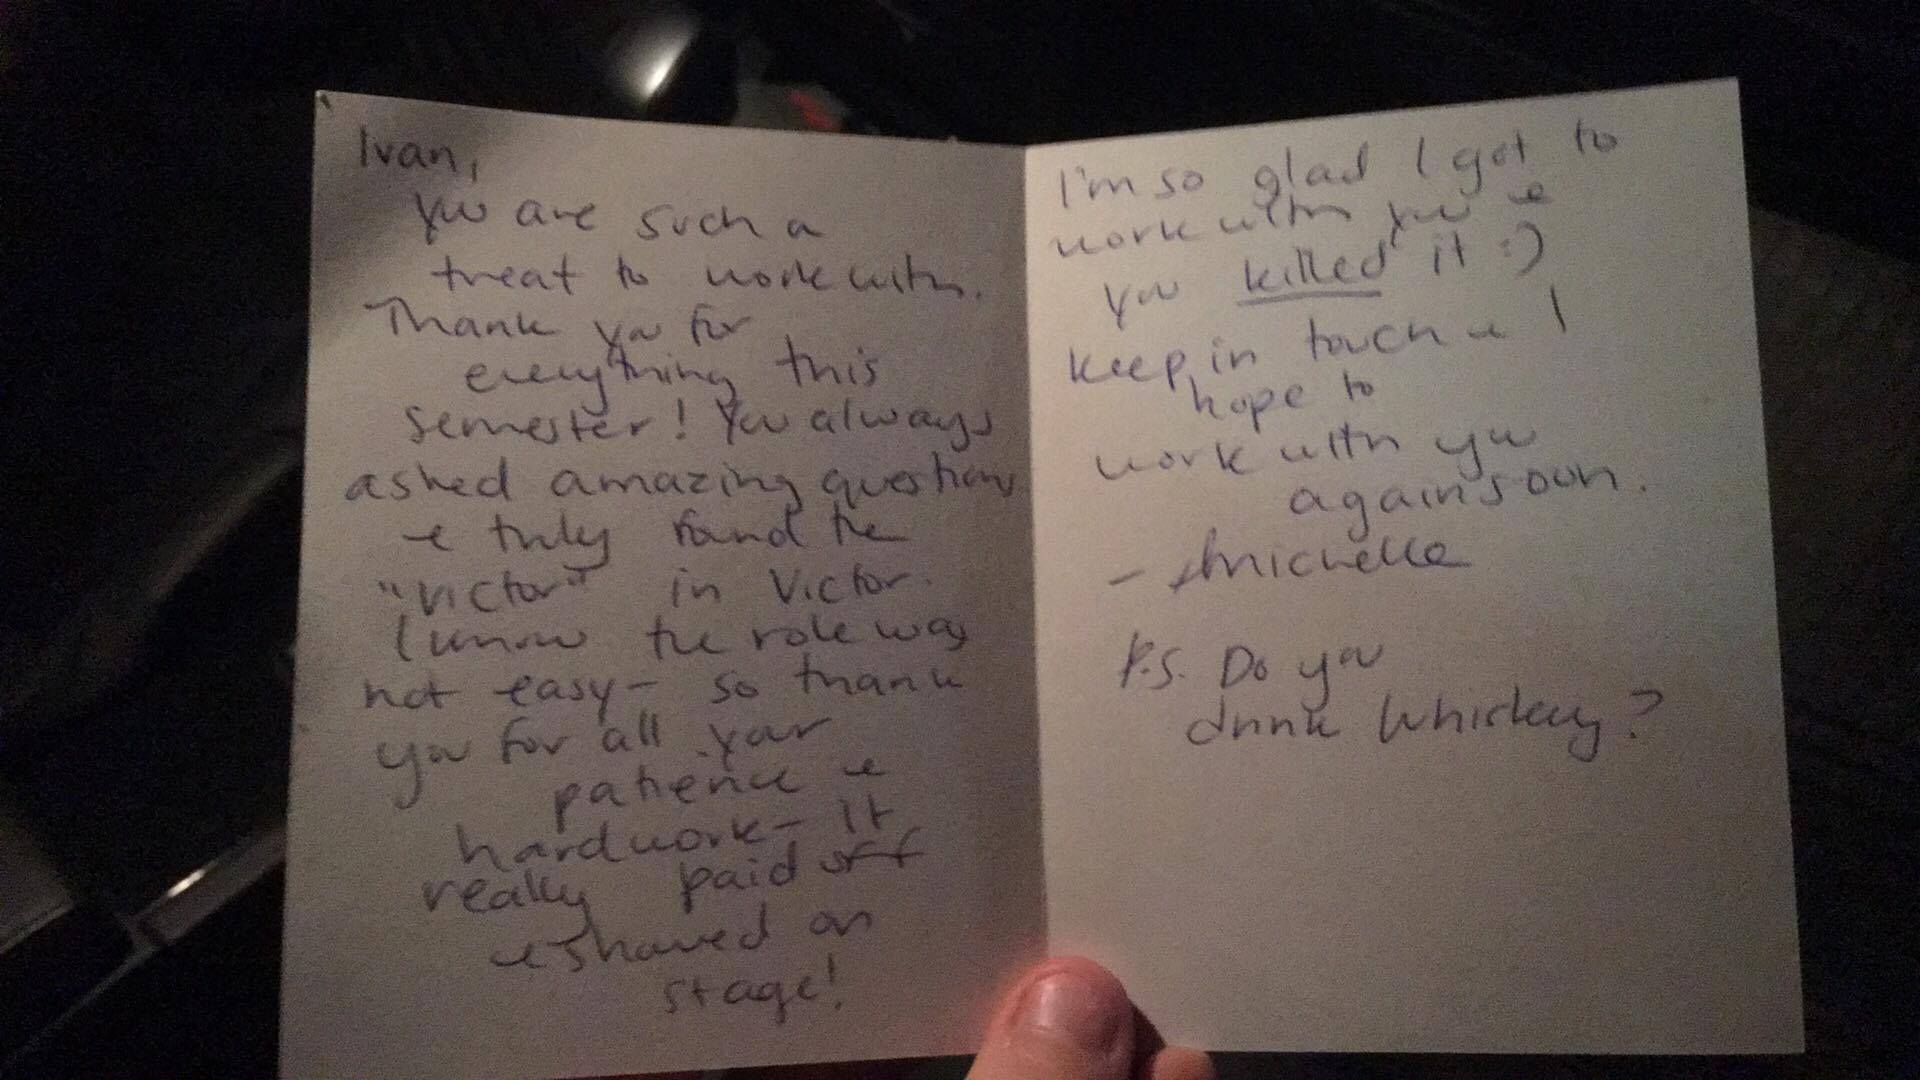 Ivan,
You are such a
treat to work with.
Thank you for
everything this
semester! You always
asked amazing questions
& truly found the
"Victor" in Victor.
I know the role was
not easy - so thank
you for all your
patience &
hardwork - It
really paid off
& showed on
stage!
I'm so glad I got to
work with you &
you killed it :)
Keep in touch & I
hope to
work with you
again soon.
- Michelle
P.S. Do you
drink Whiskey?